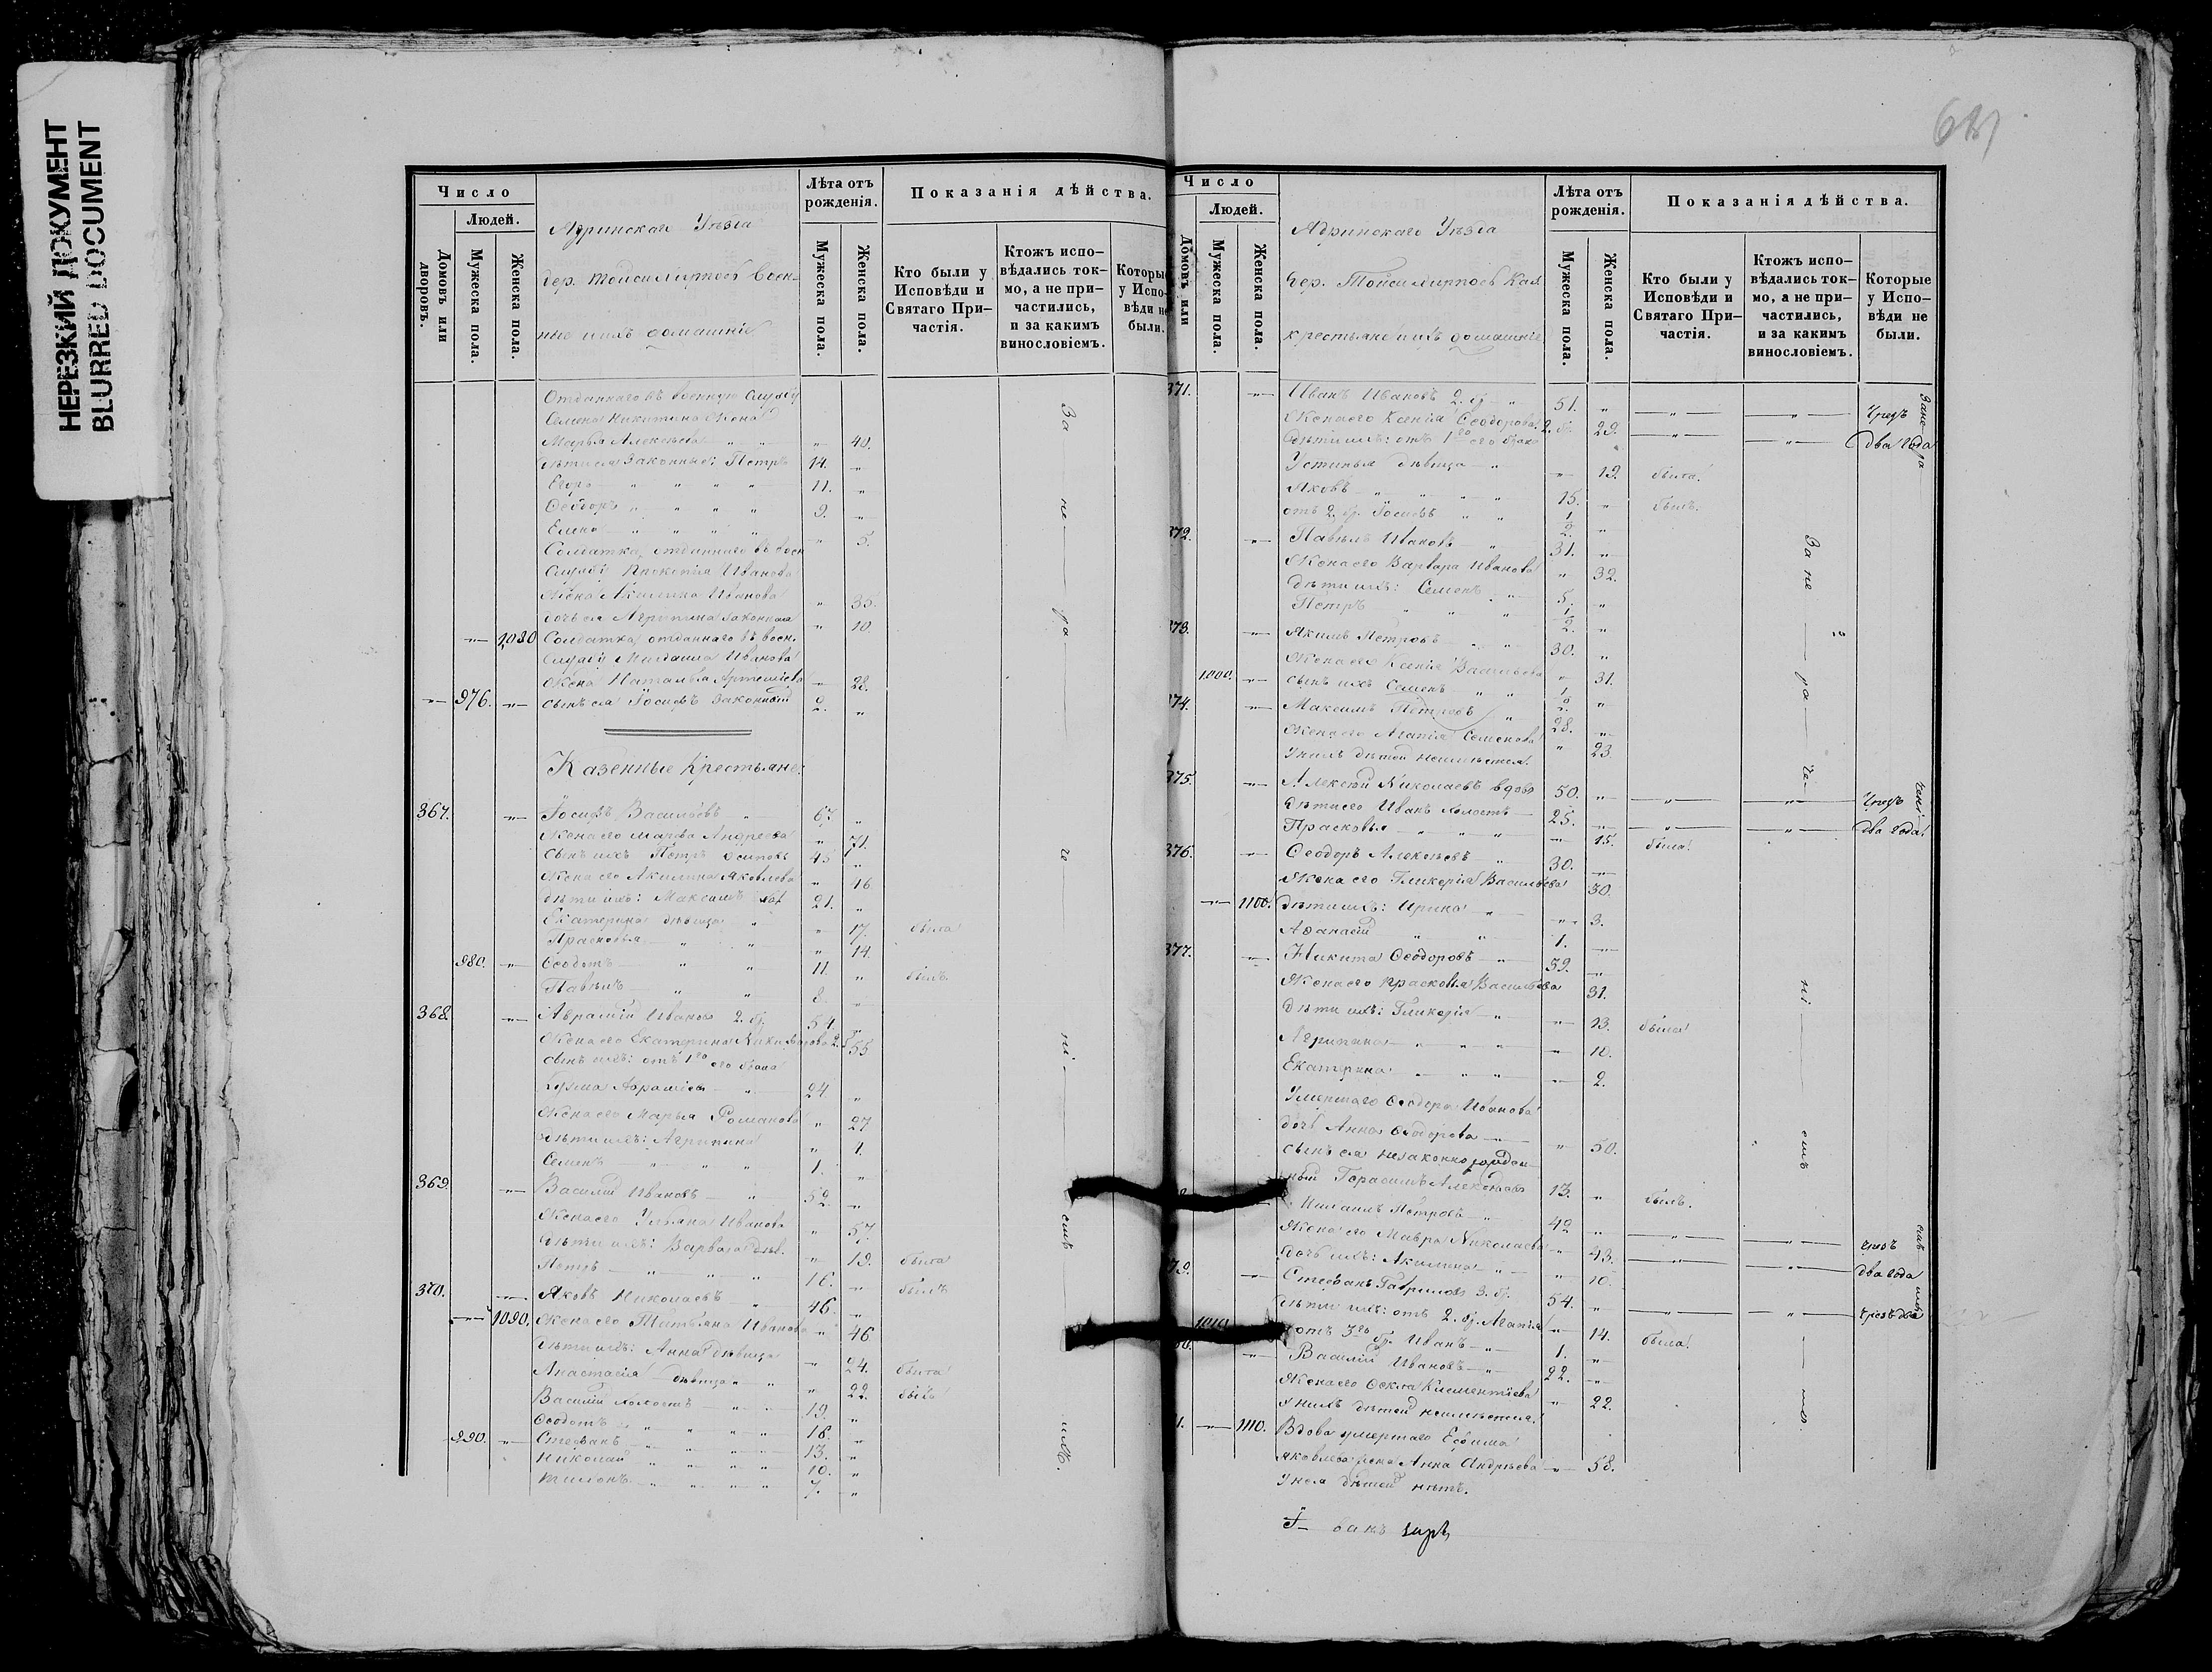 НЕРЕЗКИЙ ДОКУМЕНТ
BLURRED DOCUMENT
Число
Людей.
Домовъ или дворовъ.
Мужеска пола.
Женска пола.
Ядринскаго Уѣзда
дер. Тойсипарт Воен-
ные и ихъ домашніе
Лѣта отъ рожденія.
Мужеска пола.
Женска пола.
Показанія дѣйства.
Кто были у Исповѣди и Святаго При-
частія.
Ктожъ испо-
вѣдались ток-
мо, а не при-
частились,
и за какимъ
винословіемъ.
Которые
у Испо-
вѣди не
были.
Отданнаго въ военную службу
Семена Никитина жена
Марья Алексѣева " " " 40.
дѣти ея законные: Петръ 14. "
Егоръ " " " " 11. "
Ѳеодоръ " " " " 9. "
Елена " " " " " 5.
Солдатка, отданнаго въ воен
службу Прокопія Иванова
жена Акилина Иванова " 35.
дочь ея Агрипина законная " 10.
" 1080 Солдатка отданнаго въ воен.
службу Михаила Иванова
жена Наталья Артемьева " 28.
" 976. " сынъ ея Іосифъ законный 2. "
Казенные крестьяне:
367. " Іосифъ Васильевъ " 67. "
Жена его Марѳа Андреева " 71.
сынъ ихъ Петръ Осиповъ 45 "
Жена его Акилина Яковлева " 46
дѣти ихъ: Максимъ хол 21. "
Екатерина дѣвица " " 17. была
Прасковья " " " 14.
980. " Ѳеодотъ " " 11. " былъ
Павелъ " " 8. "
368. " Аврамій Ивановъ 2. б. 54. "
Жена его Екатерина 2. б. 55
сынъ ихъ: отъ 1го его брака
Кузма Аврамьевъ " 24. "
Жена его Марья Романова " 27
дѣти ихъ: Агрипина " 1.
Семенъ " " " 1. "
369. " Василій Ивановъ " 52. "
Жена его Ульяна Иванова " 57.
дѣти ихъ: Варвара дѣв. " 19. была
Петръ " " " 16. " былъ
370. " Яковъ Николаевъ " 46. "
" 1090. Жена его Татьяна Иванова " 46
дѣти ихъ: Анна дѣвица " 24. была
Анастасія дѣвица " " " 22.
Василій холостъ " " 19. "
Ѳеодотъ " " " " 16. "
990. " Стефанъ " " " " 13. "
Николай " " " " 10. "
" " " " 7. "
За не
Число
Людей.
Домовъ или
Мужеска пола.
Женска пола.
Ядринскаго Уѣзда
дер. Тойсипарт Каз.
крестьяне и ихъ домашніе
Лѣта отъ рожденія.
Мужеска пола.
Женска пола.
Показанія дѣйства.
Кто были у Исповѣди и Святаго При-
частія.
Ктожъ испо-
вѣдались ток-
мо, а не при-
частились,
и за какимъ
винословіемъ.
Которые
у Испо-
вѣди не
были.
371. " Иванъ Ивановъ 2. б. " 51. " " " Чрезъ
Жена его Ксенія Ѳеодорова 2. б. 29. " " два года
дѣти ихъ: отъ 1го его брака
Устинья дѣвица " " 19. была.
Яковъ " " " " 15. " былъ.
отъ 2. б. Іосифъ " " 1/2. "
372. " Павелъ Ивановъ " 31. "
Жена его Варвара Иванова " 32.
дѣти ихъ: Семенъ " 5. "
Петръ " " " 1/2. "
373. " Якимъ Петровъ " 30. "
Жена его Ксенія Васильева " 31.
1000. " сынъ ихъ Семенъ " " 1/2. "
374. " Максимъ Петровъ " 28. "
Жена его Агапія Семенова " 23.
У нихъ дѣтей неимѣется.
375. " Алексѣй Николаевъ вдовъ 50. " " " Чрезъ
дѣти его Иванъ холостъ 25. " " " два года
Прасковья " " " " 15. была.
376. " Ѳеодоръ Алексѣевъ " 30. "
Жена его Гликерія Васильева 30.
" 1100. дѣти ихъ: Ирина " " 3.
Аѳанасій " " 1. "
377. " Никита Ѳеодоровъ " 59. "
Жена его Прасковья Васильева 31.
дѣти ихъ: Гликерія " " 13. была
Агрипина " " " " 10.
Екатерина " " " " 2.
Умершаго Ѳеодора Иванова
дочь Анна Ѳеодорова " " 50.
сынъ ея незаконнорожден-
ный Герасимъ Алексѣевъ 13. " былъ.
Михаилъ Петровъ " 42 " " " чрезъ
Жена его Мавра Николаева " 43. " " два года
дочь ихъ: Акилина " " 10.
" Стефанъ Гавриловъ 3. б. 54. " " " чрезъ два
дѣти ихъ: отъ 2. б. Агапія " 14. была.
отъ 3го б. Иванъ " 1. "
" Василій Ивановъ " 22. "
Жена его Ѳекла Климентіева " 22.
У нихъ дѣтей неимѣется.
" 1110. Вдова умершаго Ефима
Яковлева жена Анна Андреева " 58.
У нея дѣтей нѣтъ.
За не